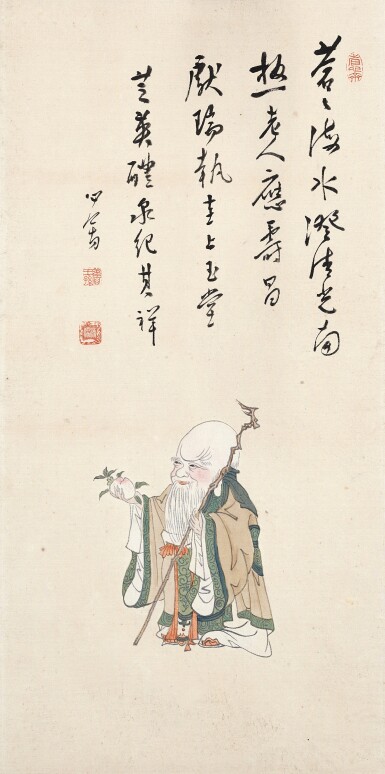 蒼〻海水澄清光南
極老人應壽昌
獻瑞執圭上玉堂
芝英醴泉紀其祥
心畬